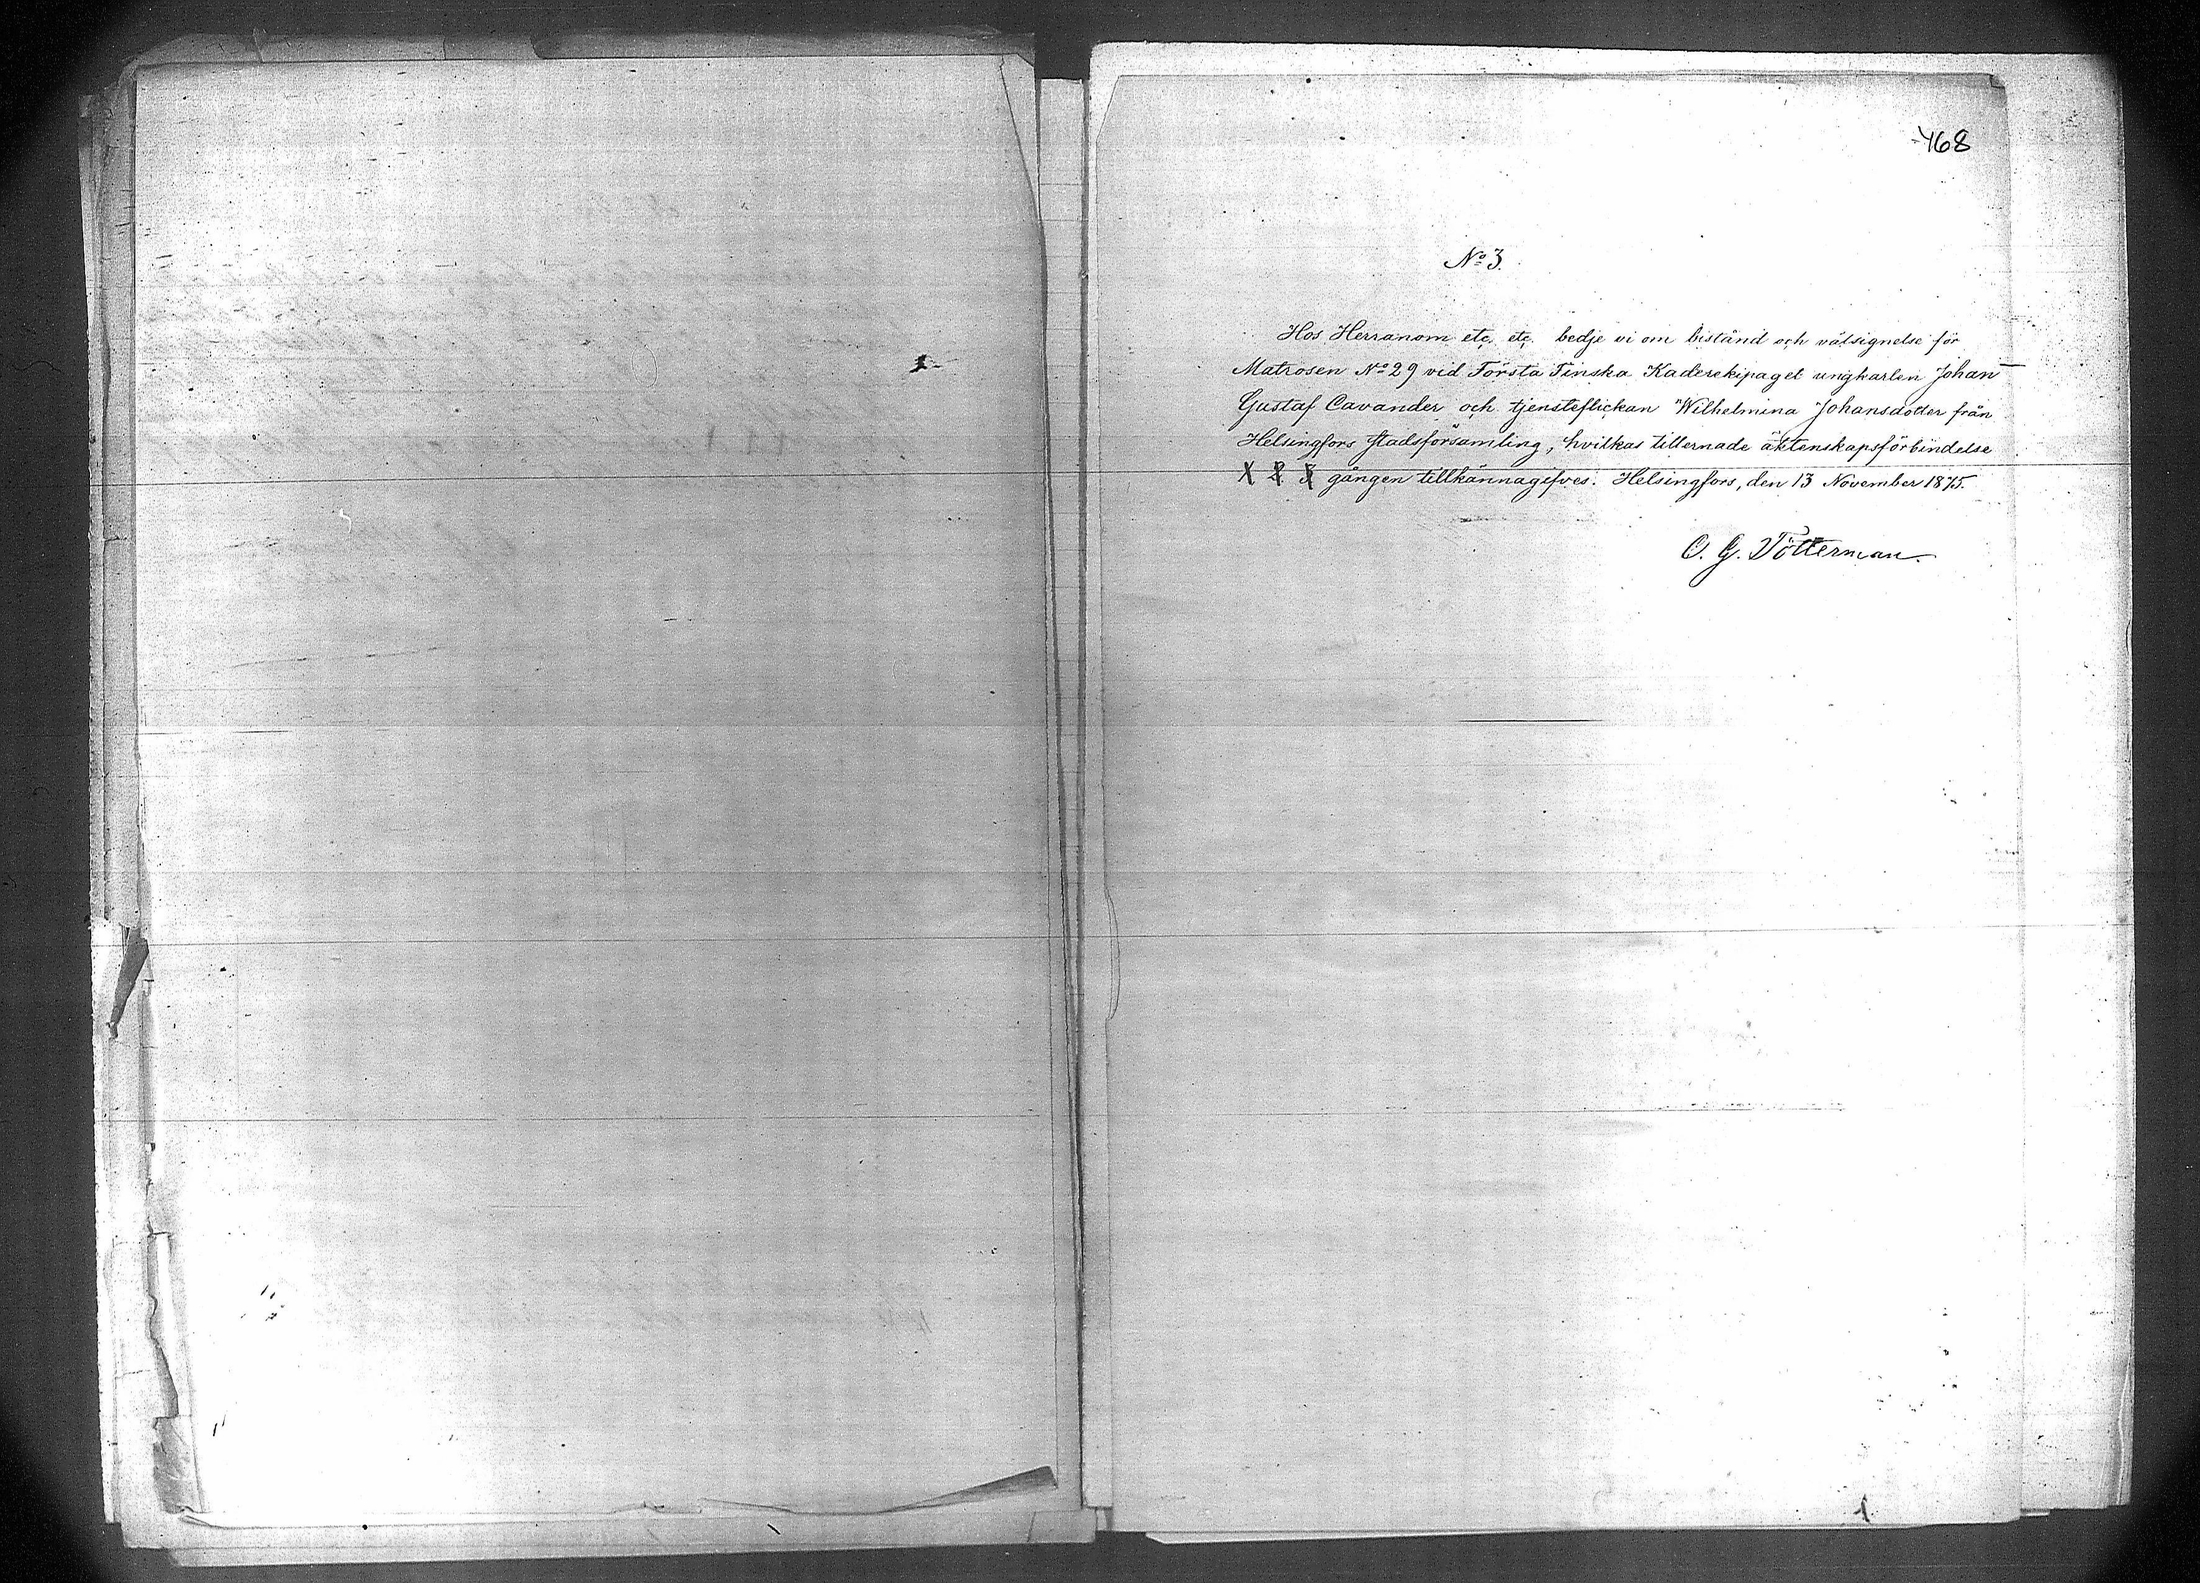 468
No 3.
Hos Herranom etc. etc. bedje vi om bistånd och välsignelse för
Matrosen No 29 vid Första Finska Kaderekipaget ungkarlen Johan
Gustaf Cavander och tjensteflickan Wilhelmina Johansdotter från
Helsingfors stadsförsamling, hvilkas tillernade äktenskapsförbindelse
1 2. 3 gången tillkännagifves. Helsingfors, den 13 November 1875.
O. G. Tötterman.